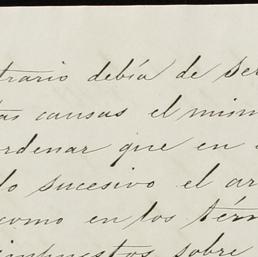 trario debía de ser
tas causas el mism
rdenar que en
lo sucesivo el ar
como en los térm
impuestos sobre